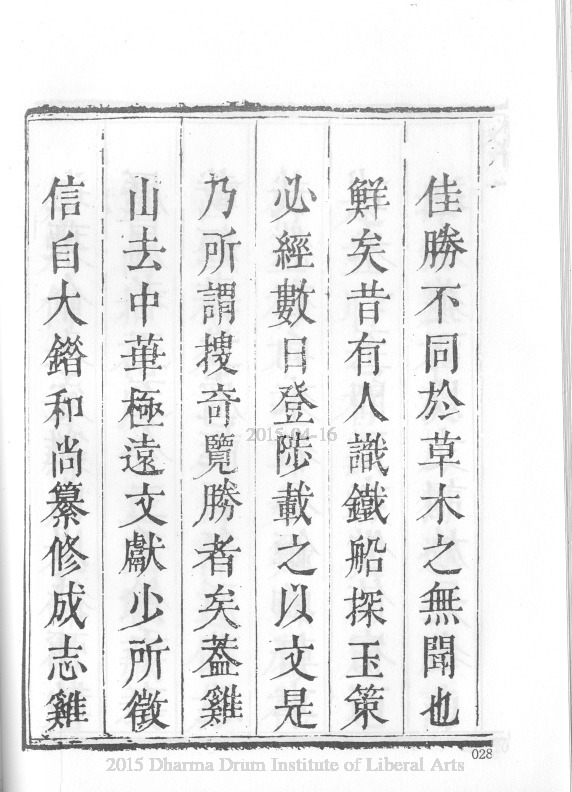 佳勝不同於草木之無聞也
鮮矣昔有人識鐵船探玉策
必經數日登陟載之以文是
乃所謂搜奇覽勝者矣葢雞
山去中華極遠文獻少所徵
信自大錯和尚纂修成志雞
2015-04-16
028
2015 Dharma Drum Institute of Liberal Arts